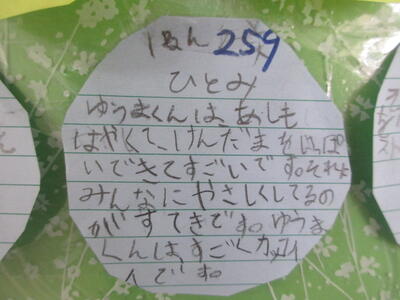 1ねん 259
ひとみ
ゆうまくんは、あしも
はやくて、けんだまをいっぱ
いできてすごいです。それに
みんなにやさしくしてるの
がすてきです。ゆうま
くんはすごくカッコイ
イです。